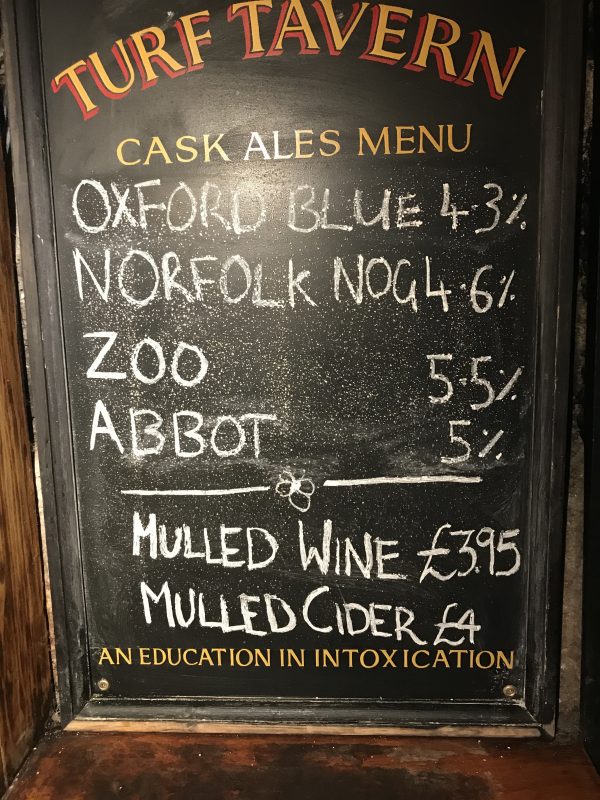 TURF TAVERN
CASK ALES MENU
OXFORD BLUE 4.3%
NORFOLK NOG 4.6%
ZOO 5.5%
ABBOT 5%
MULLED WINE £3.95
MULLED CIDER £4
AN EDUCATION IN INTOXICATION